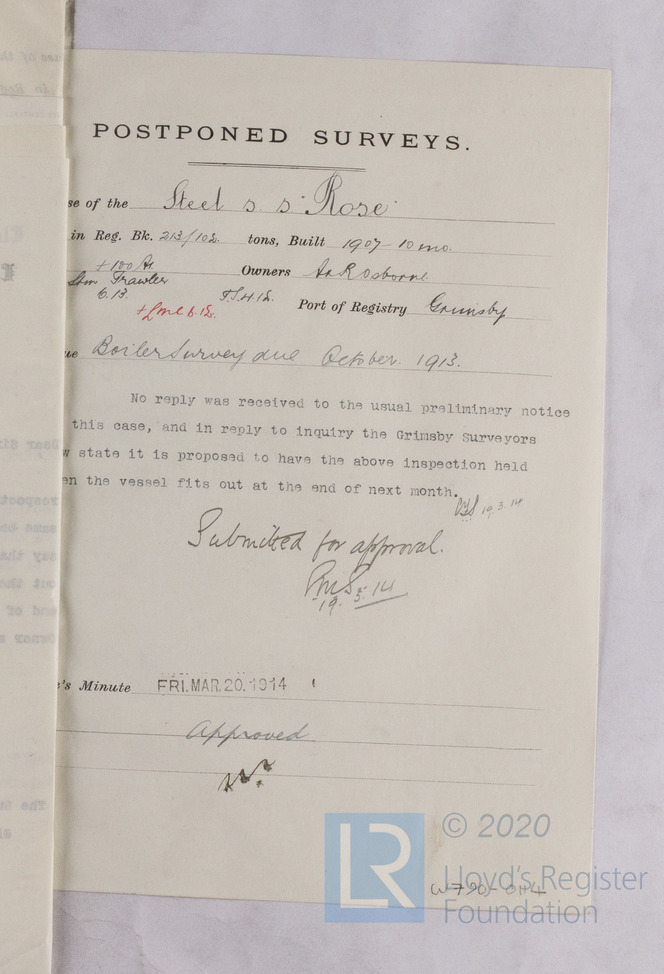 POSTPONED SURVEYS.
se of the Steel s. s "Rose"
in Reg. Bk. 213/102 tons, Built 1907-10mo.
+100A1
Stm Trawler
6.13.
Owners A. R Osborne
+LMC 6.12.
T.S.4.12.
Port of Registry Grimsby
ue Boiler Survey due October. 1913.
No reply was received to the usual preliminary notice
this case, and in reply to inquiry the Grimsby Surveyors
w state it is proposed to have the above inspection held
en the vessel fits out at the end of next month.
19.3.14
Submitted for approval.
19.3.14
's Minute FRI.MAR.20.1914
Approved
W790-0114
LR
© 2020
Lloyd's Register
Foundation